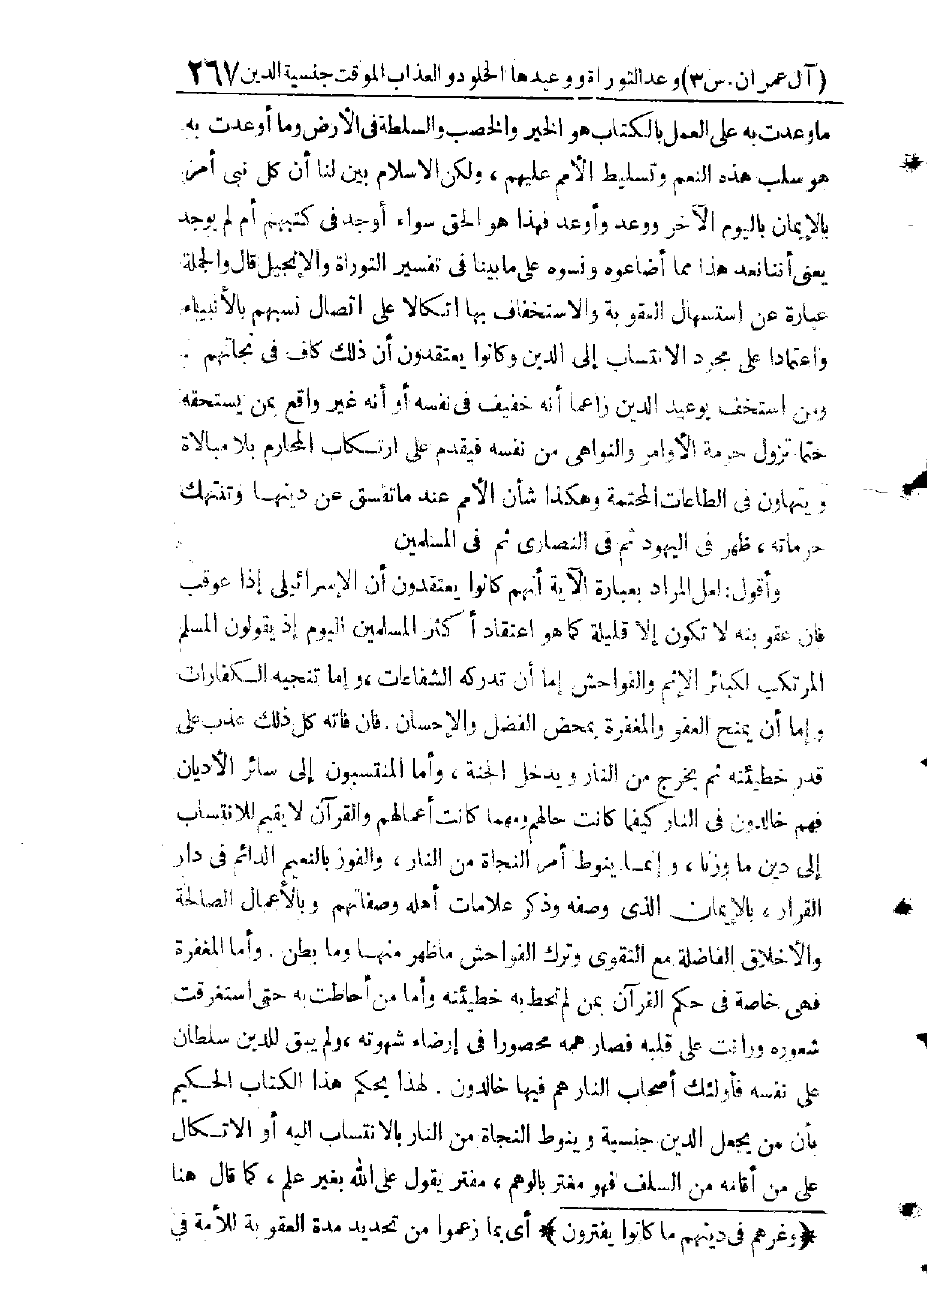 (آل عمران . س ٣) وعد التوراة ووعيدها الخلود والعذاب الموقت جنسية الدين ٢٦٧
ما وعدت به على العمل بالكتاب هو الخير والخصب والسلطة فى الأرض وما أوعدت به
هو سلب هذه النعم وتسليط الأمم عليهم ، ولكن الاسلام بين لنا أن كل نبى أمر
بالإيمان باليوم الآخر ووعد وأوعد فهذا هو الحق سواء أوجد فى كتبهم أم لم يوجد
يعنى أننا نعد هذا مما أضاعوه ونسوه على ما بينا فى تفسير التوراة والإنجيل قال والجملة
عبارة عن استسهال العقوبة والاستخفاف بها اتكالا على اتصال نسبهم بالأنبياء
واعتمادا على مجرد الانتساب إلى الدين وكانوا يعتقدون أن ذلك كاف فى نجاتهم .
ومن استخف بوعيد الدين زاعما أنه خفيف فى نفسه أو أنه غير واقع بمن يستحقه
حتما تزول حرمة الأوامر والنواهى من نفسه فيقدم على ارتكاب المحارم بلا مبالاة
ويتهاون فى الطاعات المحتمة وهكذا شأن الأمم عند ما تفسق عن دينها وتنتهك
حرماته ، ظهر فى اليهود ثم فى النصارى ثم فى المسلمين
وأقول : لعل المراد بعبارة الآية أنهم كانوا يعتقدون أن الإسرائيلى إذا عوقب
فان عقوبته لا تكون إلا قليلة كما هو اعتقاد أكثر المسلمين اليوم إذ يقولون المسلم
المرتكب لكبائر الإثم والفواحش إما أن تدركه الشفاعات ، وإما تنجيه الكفارات
وإما أن يمنح العفو والمغفرة بمحض الفضل والإحسان . فان فاته كل ذلك عذب على
قدر خطيئته ثم يخرج من النار ويدخل الجنة ، وأما المنتسبون إلى سائر الأديان
فهم خالدون فى النار كيفما كانت حالهم ومهما كانت أعمالهم والقرآن لا يقيم للانتساب
إلى دين ما وزنا ، وإنما ينوط أمر النجاة من النار ، والفوز بالنعيم الدائم فى دار
القرار ، بالإيمان الذى وصفه وذكر علامات أهله وصفاتهم وبالأعمال الصالحة
والأخلاق الفاضلة مع التقوى وترك الفواحش ما ظهر منها وما بطن . وأما المغفرة
فهى خاصة فى حكم القرآن بمن لم تحط به خطيئته وأما من أحاطت به حتى استغرقت
شعوره ورانت على قلبه فصار همه محصورا فى إرضاء شهوته ، ولم يبق للدين سلطان
على نفسه فأولئك أصحاب النار هم فيها خالدون . لهذا يحكم هذا الكتاب الحكيم
بأن من يجعل الدين جنسية وينوط النجاة من النار بالانتساب اليه أو الاتكال
على من أقامه من السلف فهو مغتر بالوهم ، مفتر يقول على الله بغير علم ، كما قال هنا
﴿ وغرهم فى دينهم ما كانوا يفترون ﴾ أى بما زعموا من تحديد مدة العقوبة للأمة فى